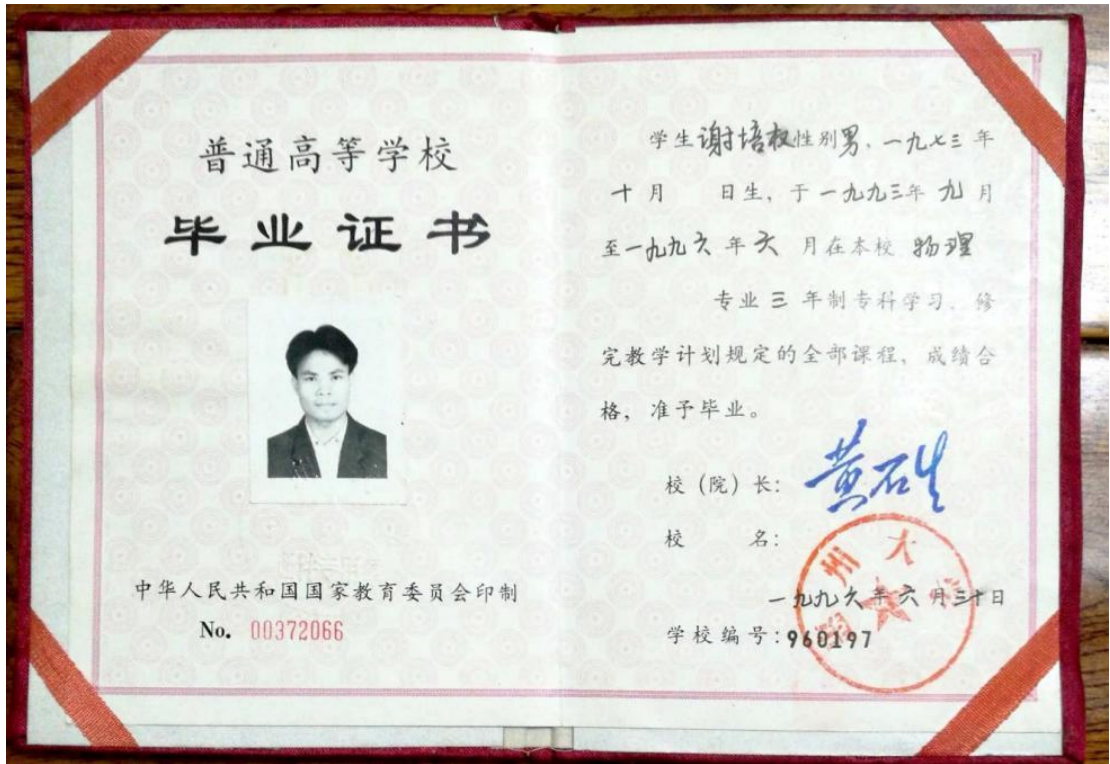 普通高等学校
毕业证书
中华人民共和国国家教育委员会印制
No. 00372066
学生谢培权性别男，一九七三年
十月 日生，于一九九三年九月
至一九九六年六月在本校物理
专业三年制专科学习，修
完教学计划规定的全部课程，成绩合
格，准予毕业。
校（院）长：黄石生
校 名：
州大学
一九九六年六月三十日
学校编号：960197